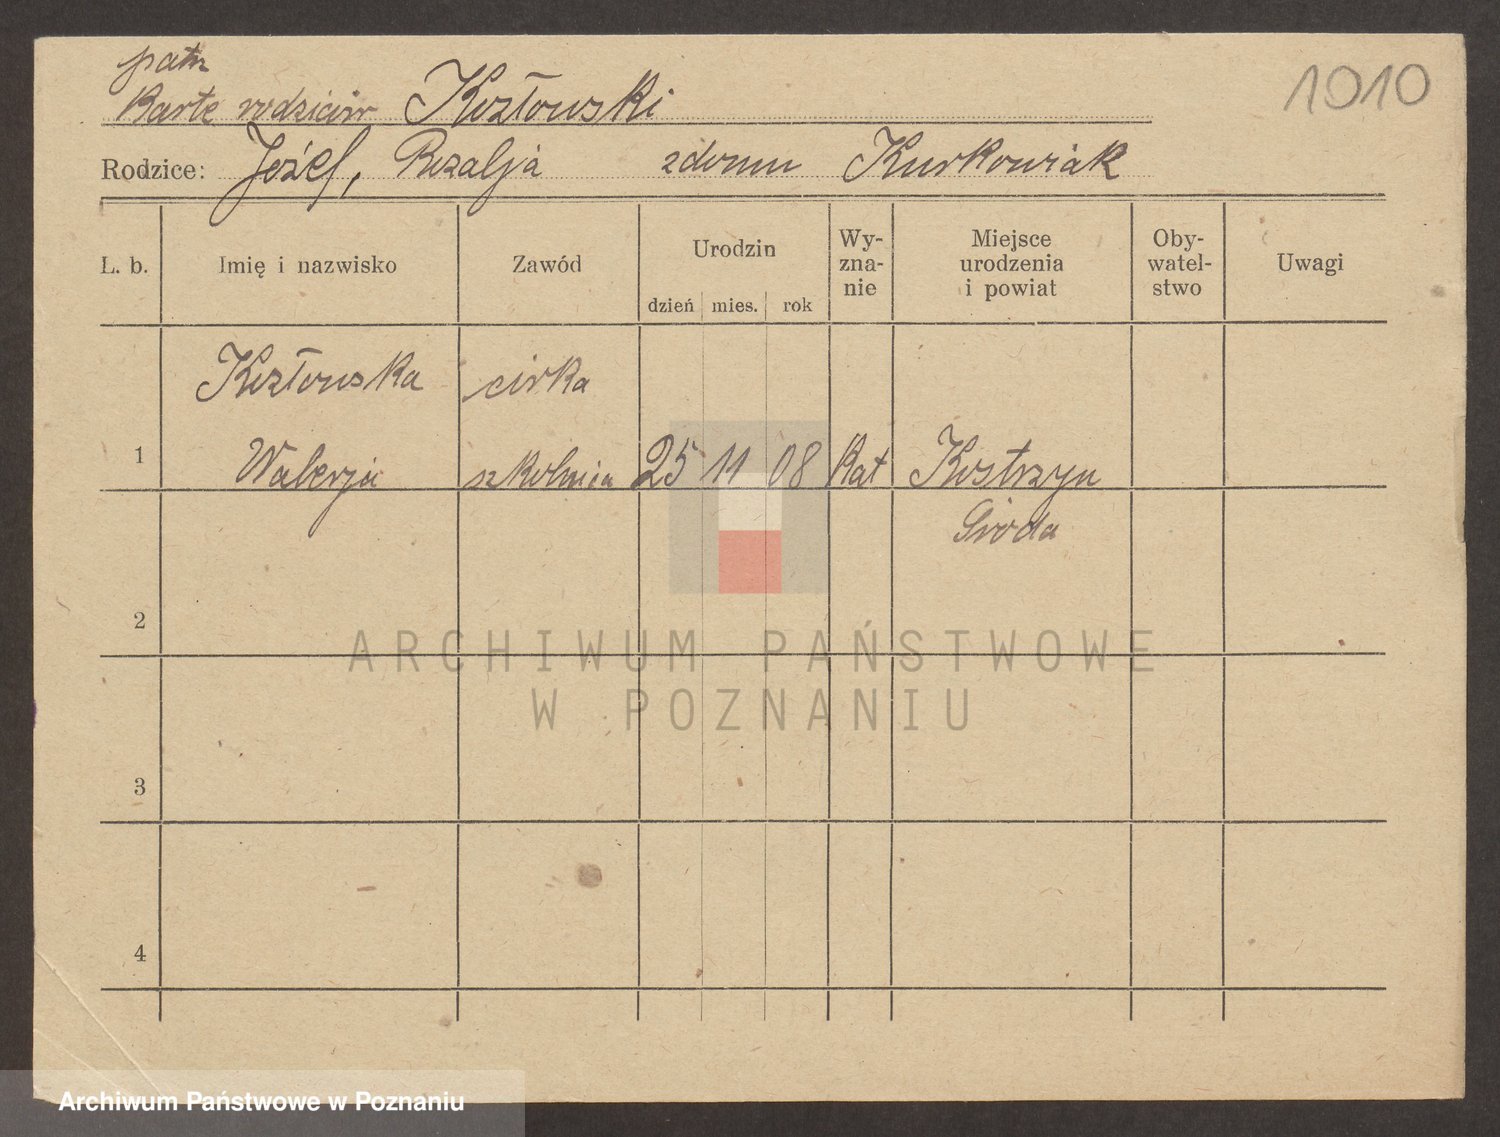 patrz
Kartę rodziców Kozłowski
1910
Rodzice: Józef, Rozalja z domu Kurkowiak
L. b. Imię i nazwisko Zawód Urodzin dzień mies. rok Wy-zna-nie Miejsce urodzenia i powiat Oby-watel-stwo Uwagi
Kozłowska córka
1 Walerja szkolnica 25 11 08 Kat Kostrzyn
Środa
2
ARCHIWUM PAŃSTWOWE
W POZNANIU
3
4
Archiwum Państwowe w Poznaniu